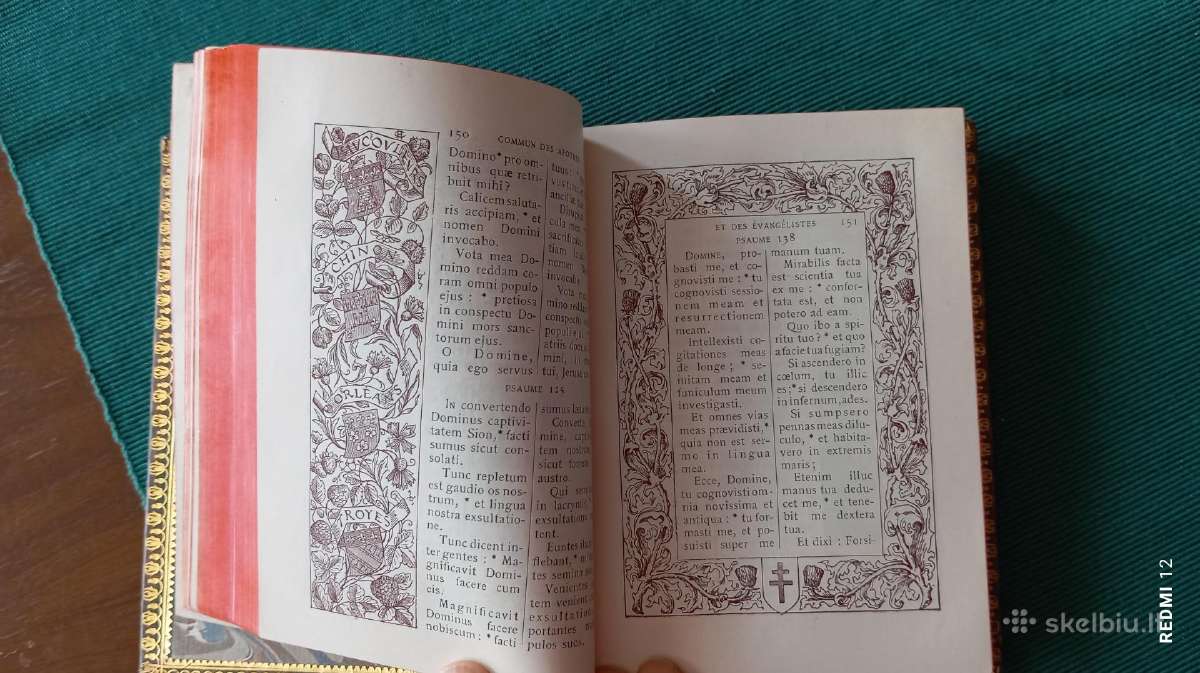 150 COMMUN DES
VCOVLE
CHIN
ORLEANS
ROYES
Domino * pro om-
nibus quæ retri-
buit mihi?
Calicem saluta-
ris accipiam, * et
nomen Domini
invocabo.
Vota mea Do-
mino reddam co-
ram omni populo
ejus : * pretiosa
in conspectu Do-
mini mors sanc-
torum ejus.
O Domine,
quia ego servus
tuus :
cola mea
sacrifica
tium
invoca
Vota m
mino
conspectu
populi
atriis domu
mini, in
tui, Jerus
PSAUME 125
In convertendo
Dominus captivi-
tatem Sion, * facti
sumus sicut con-
solati.
Tunc repletum
est gaudio os nos-
trum, * et lingua
nostra exsultatio-
ne.
Tunc dicent in-
ter gentes : * Ma-
gnificavit Domi-
nus facere cum
eis.
Magnificavit
Dominus facere
nobiscum : * facti
sumus
Converte
mine, capt
tem nostr
sicut
austro.
Qui sem
in lacrym
exsultation
tent.
Euntes
flebant, *
tes semina
Venientes
tem venient
exsultation
portantes
pulos suos.
ET DES ÉVANGÉLISTES 151
PSAUME 138
DOMINE, pro-
basti me, et co-
gnovisti me : * tu
cognovisti sessio-
nem meam et
resurrectionem
meam.
Intellexisti co-
gitationes meas
de longe ; * se-
mitam meam et
funiculum meum
investigasti.
Et omnes vias
meas prævidisti, *
quia non est ser-
mo in lingua
mea.
Ecce, Domine,
tu cognovisti om-
nia novissima et
antiqua : * tu for-
masti me, et po-
suisti super me
manum tuam.
Mirabilis facta
est scientia tua
ex me : * confor-
tata est, et non
potero ad eam.
Quo ibo a spi-
ritu tuo? * et quo
a facie tua fugiam?
Si ascendero in
cœlum, tu illic
es; * si descendero
in infernum, ades.
Si sumpsero
pennas meas dilu-
culo, * et habita-
vero in extremis
maris ;
Etenim illuc
manus tua dedu-
cet me, * et tene-
bit me dextera
tua.
Et dixi : Forsi-
REDMI 12
skelbiu.lt